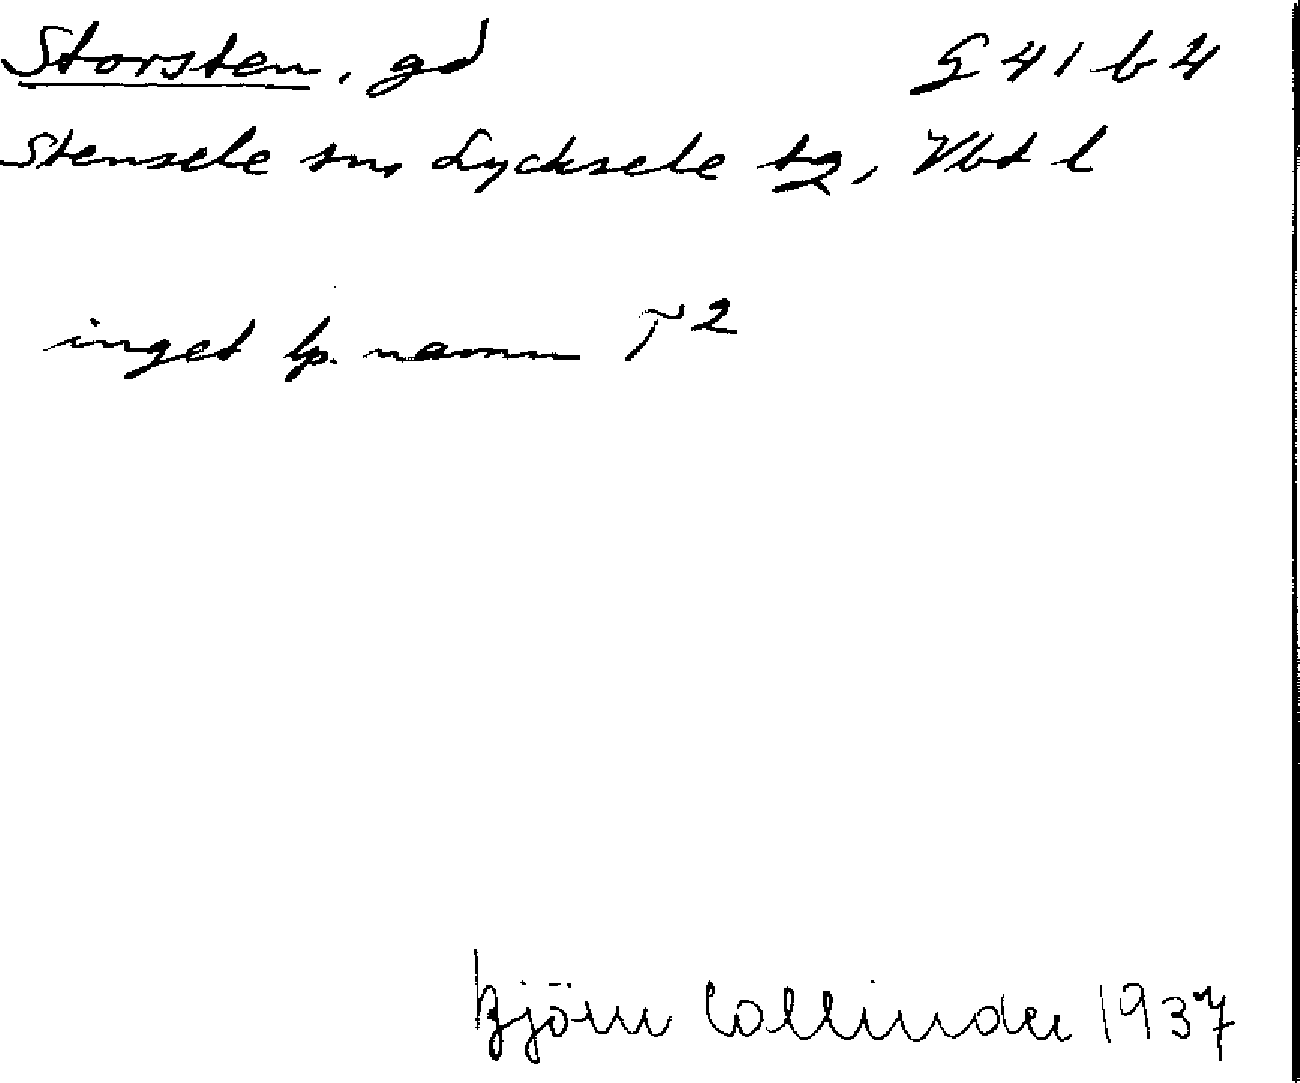 Storsten, gd G 41 b 4
Stensele sn, Lycksele tg, Vbd l
inget lp. namn T²
Björn Collinder 1937